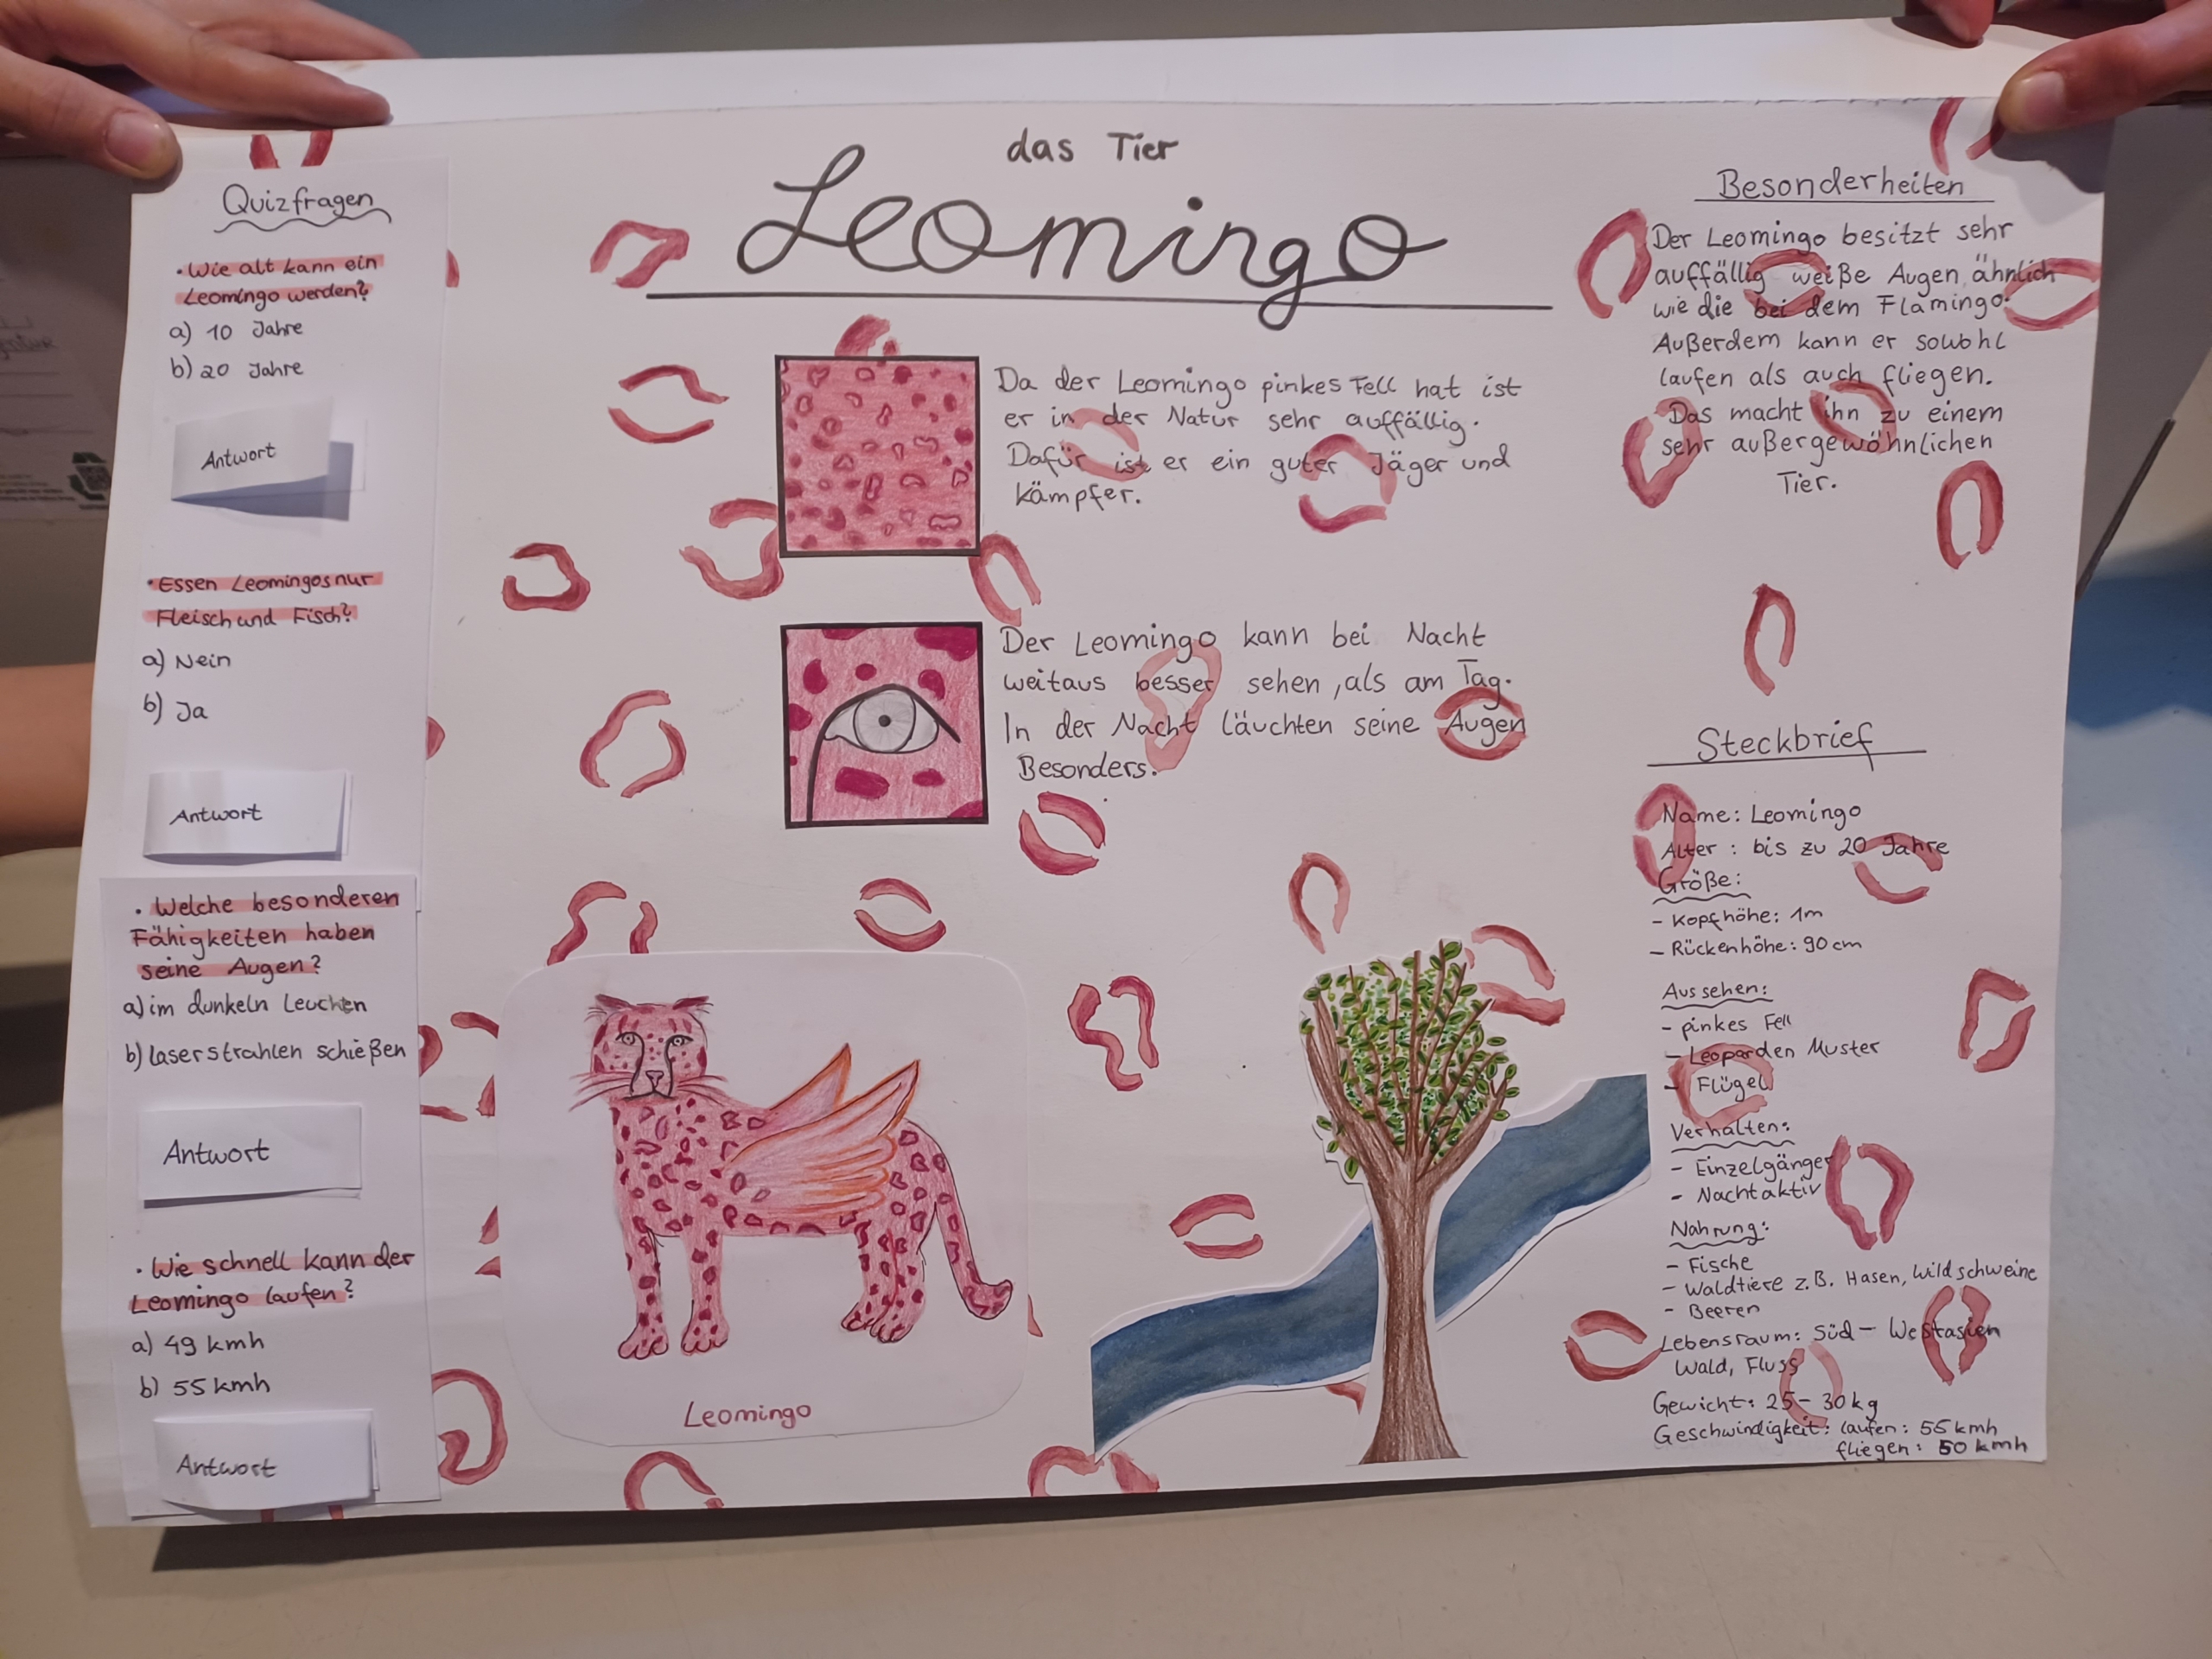 das Tier
Leomingo
Quizfragen
• Wie alt kann ein
Leomingo werden?
a) 10 Jahre
b) 20 Jahre
Antwort
• Essen Leomingos nur
Fleisch und Fisch?
a) Nein
b) Ja
Antwort
• Welche besonderen
Fähigkeiten haben
seine Augen?
a) im dunkeln Leuchen
b) laserstrahlen schießen
Antwort
• Wie schnell kann der
Leomingo laufen?
a) 49 kmh
b) 55 kmh
Antwort
Da der Leomingo pinkes Fell hat ist
er in der Natur sehr auffällig.
Dafür ist er ein guter Jäger und
Kämpfer.
Der Leomingo kann bei Nacht
weitaus besser sehen, als am Tag.
In der Nacht läuchten seine Augen
Besonders.
Leomingo
Besonderheiten
Der Leomingo besitzt sehr
auffällig weiße Augen, ähnlich
wie die bei dem Flamingo.
Außerdem kann er sowohl
laufen als auch fliegen.
Das macht ihn zu einem
sehr außergewöhnlichen
Tier.
Steckbrief
Name: Leomingo
Alter: bis zu 20 Jahre
Größe:
- Kopfhöhe: 1m
- Rückenhöhe: 90 cm
Aussehen:
- pinkes Fell
- Leoparden Muster
- Flügel
Verhalten:
- Einzelgänger
- Nachtaktiv
Nahrung:
- Fische
- Waldtiere z.B. Hasen, Wildschweine
- Beeren
Lebensraum: Süd-Westasien
Wald, Fluss
Gewicht: 25-30 kg
Geschwindigkeit: laufen: 55 kmh
fliegen: 50 kmh